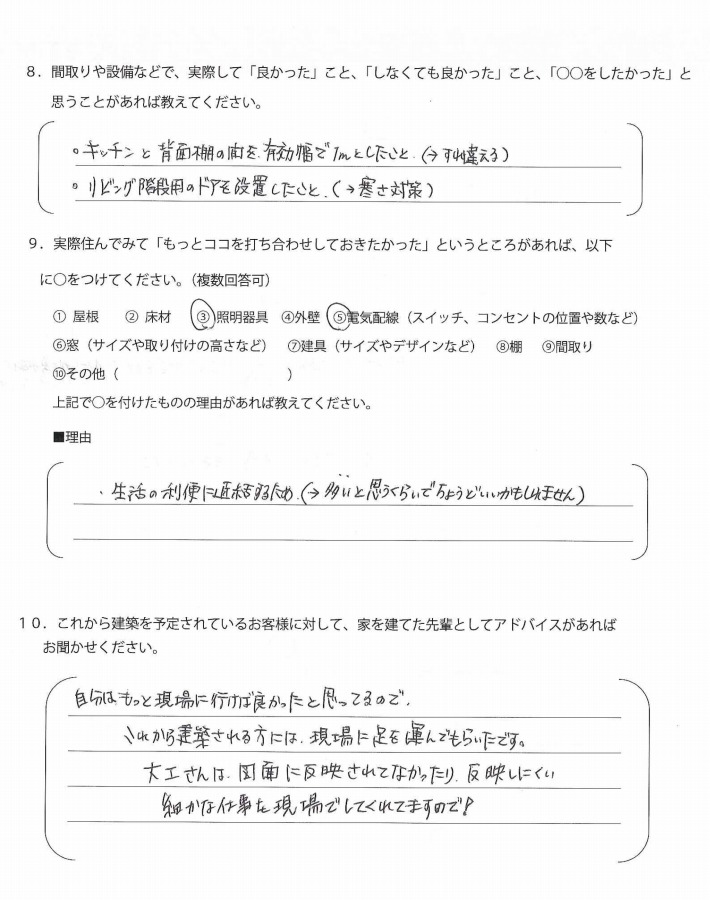 ８．間取りや設備などで、実際して「良かった」こと、「しなくても良かった」こと、「〇〇をしたかった」と
思うことがあれば教えてください。
。キッチンと背面棚の間を、有効幅で1mとしたこと。(→すれ違える)
。リビング階段用のドアを設置したこと。(→寒さ対策)
９．実際住んでみて「もっとココを打ち合わせしておきたかった」というところがあれば、以下
に〇をつけてください。（複数回答可）
① 屋根　② 床材　③照明器具　④外壁　⑤電気配線（スイッチ、コンセントの位置や数など）
⑥窓（サイズや取り付けの高さなど）　⑦建具（サイズやデザインなど）　⑧棚　⑨間取り
⑩その他（　　　　　　　　　　　　）
上記で〇を付けたものの理由があれば教えてください。
■理由
・生活の利便に直結するため。(→多いと思うくらいでちょうどいいかもしれません)
１０．これから建築を予定されているお客様に対して、家を建てた先輩としてアドバイスがあれば
お聞かせください。
自分はもっと現場に行けば良かったと思ってるので、
これから建築される方には、現場に足を運んでもらいたです。
大工さんは、図面に反映されてなかったり、反映しにくい
細かな仕事を現場でしてくれてますので！